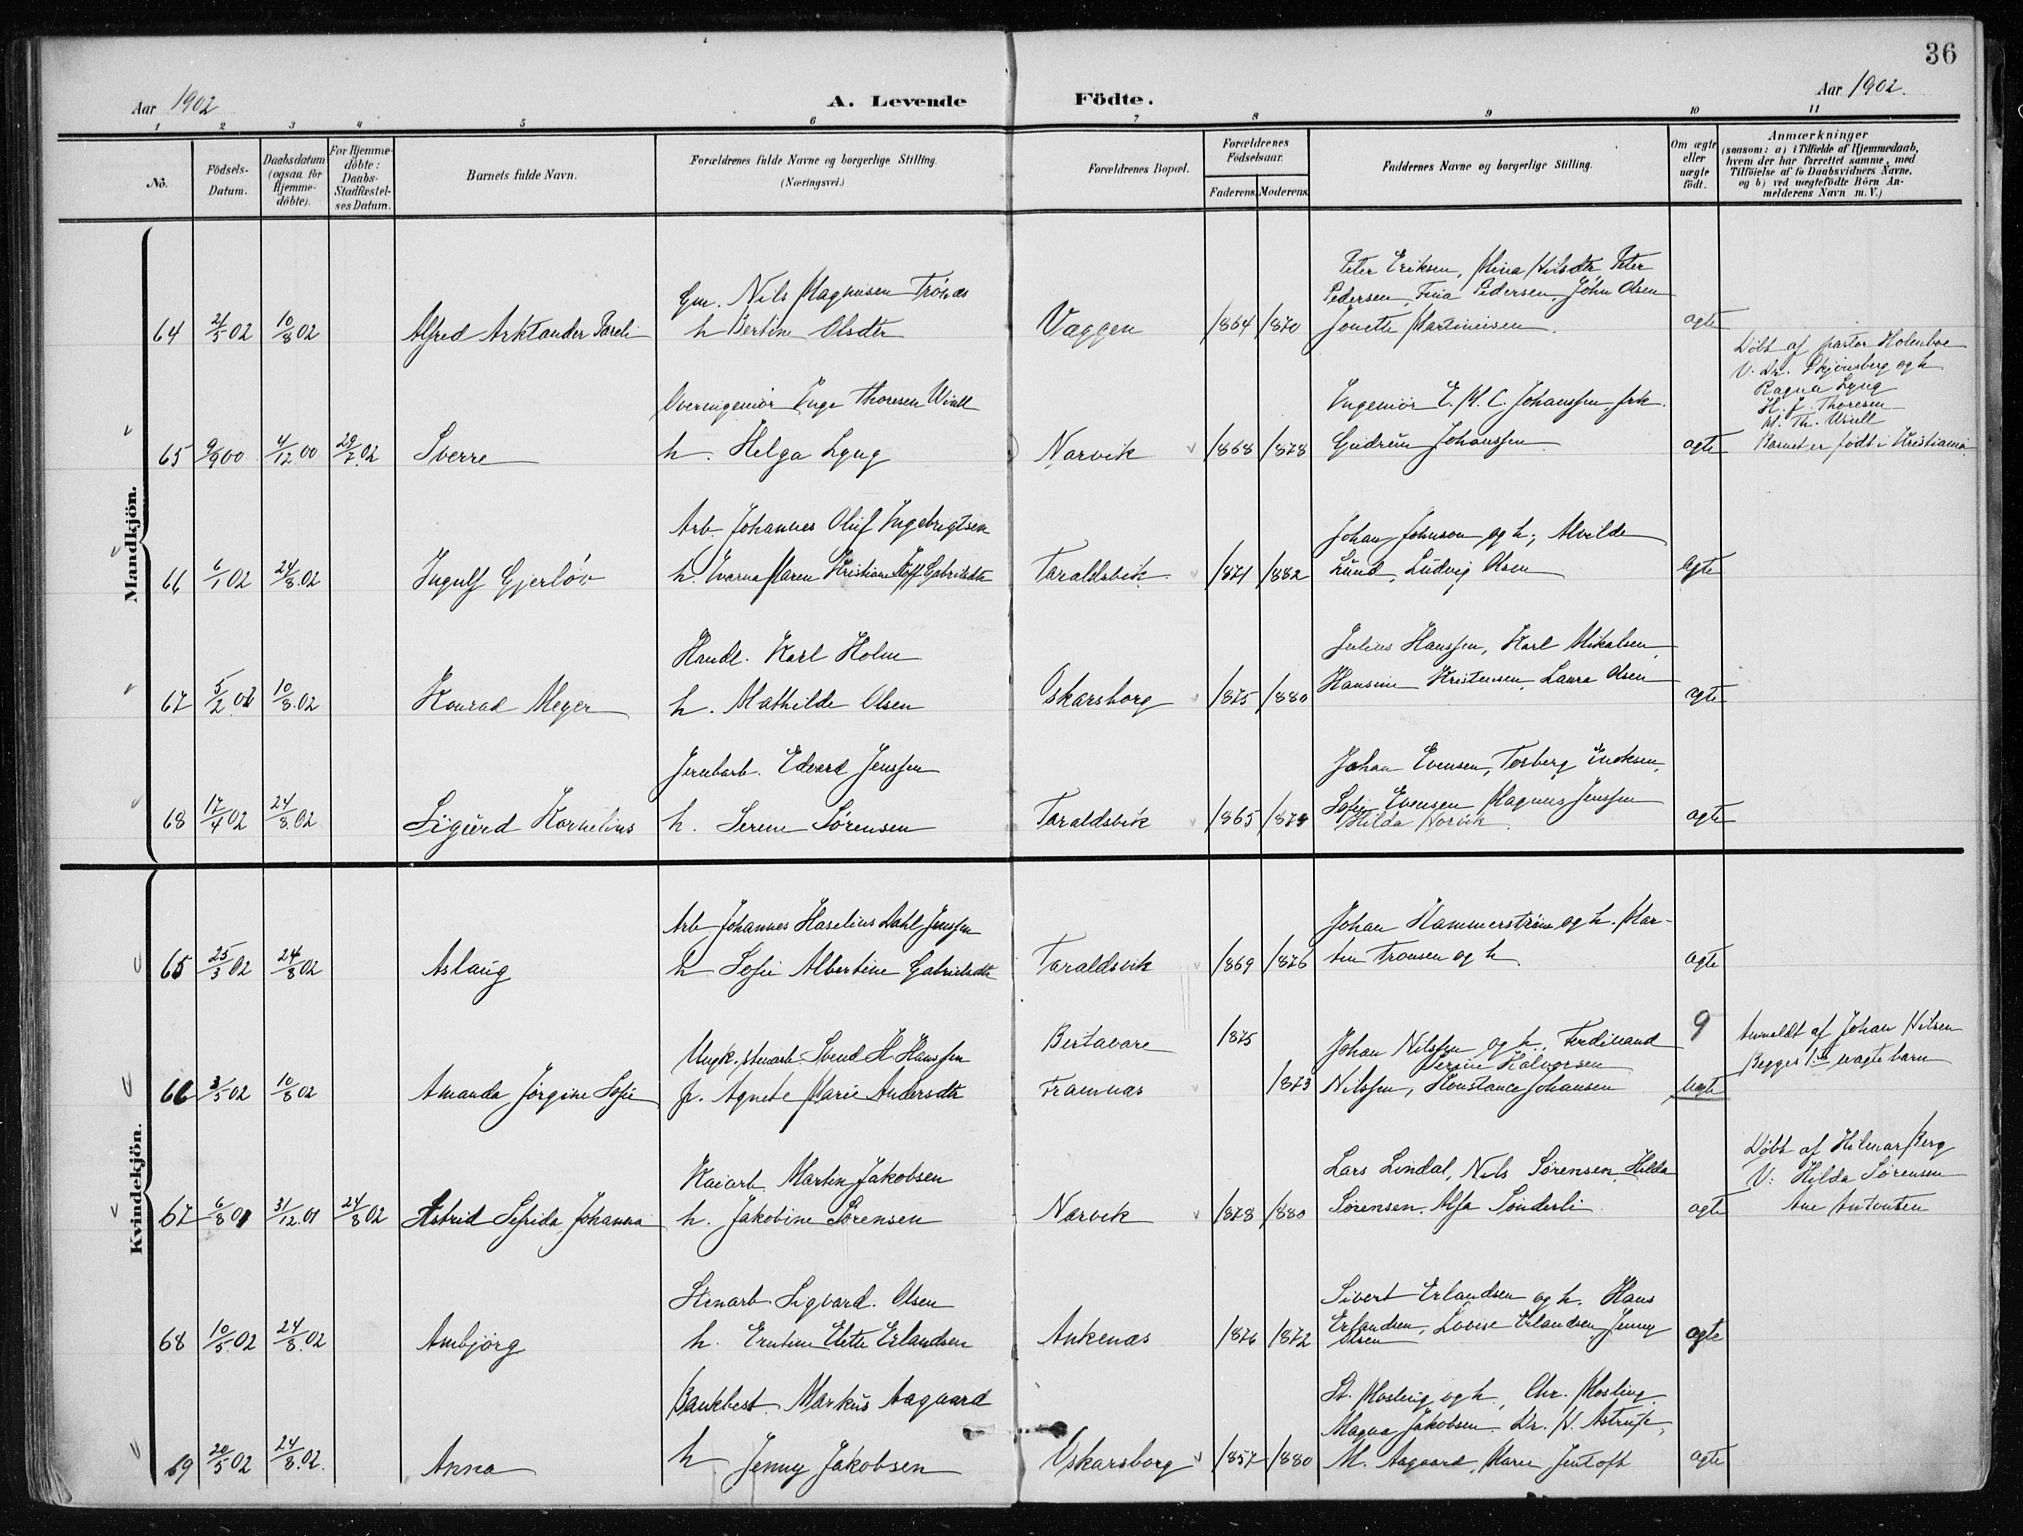 36
Aar 1902
A. Levende Födte.
Aar 1902.
1 2 3 4 5 6 7 8 9 10 11
No.
Födsels-
Datum.
Daabsdatum
(ogsaa for
Hjemme-
döbte).
For Hjemme-
döbte:
Daabs-
Stadfæstel-
ses Datum.
Barnets fulde Navn.
Forældrenes fulde Navne og borgerlige Stilling.
(Næringsvei.)
Forældrenes Bopæl.
Forældrenes
Födselsaar.
Faderens. Moderens.
Faddernes Navne og borgerlige Stilling.
Om ægte
eller
uægte
födt.
Anmærkninger
(saasom: a) i Tilfælde af Hjemmedaab,
hvem der har forrettet samme, med
Tilföielse af to Daabsvidners Navne,
og b) ved uægtefödte Börn An-
melderens Navn m. V.)
Mandkjön.
Gm. Nils Magnusen
Peter Eriksen, Mina Nilsdtr Peter
Pedersen, Fina Pedersen, John Olsen
64 2/5 02 10/8 02 Alfred Arktander h Bertine Olsdtr Vaggen 1864 1870 Jonette Martinisen. ægte
Döbt af pastor Holmboe
V. Dr. Skjönsberg og h
Ragna Lyng
H. J. Thoresen
M. Th. Wiull
Overingeniör Inge Thoresen Wiull
Ingeniör E. M. C. Johanssen, frk.
65 9/9 00 4/12 00 29/7 02 Sverre h. Helga Lyng Narvik 1868 1878 Gudrun Johanssen ægte Barnet er födt i Kristiania
Arb. Johannes Oluf Ingebrigtsen
Johan Johnson og h, Alvilde
66 6/1 02 24/8 02 Ingulf Gjerlöv h. Maren Kristiane Gabrielsdtr Taraldsvik 1871 1882 Lund, Ludvig Olsen ægte
Handl. Karl Holm
Julius Hanssen, Karl Mikalsen,
67 5/2 02 10/8 02 Konrad Meyer h. Mathilde Olsen Oskarsborg 1875 1880 Hansine Kristensen, Laura Olsen ægte
Jernbarb. Edvard Jenssen
Johan Evensen, Torberg Enoksen,
Sofie Evensen Magnus Jenssen
68 17/4 02 24/8 02 Sigurd Kornelius h. Serine Sörensen Taraldsvik 1865 Hilda Norvik. ægte
Kvindekjön.
Arb Johannes Haselius Dahl Jenssen
Johan Hammerström og h. Mar-
65 25/3 02 24/8 02 Aslaug h Sofie Albertine Gabrielsdtr Taraldsvik 1869 1876 tin Tronsen og h. ægte
Ungk. stenarb. Svend H. Hanssen Bertavare 1875
Johan Nilssen og h, Ferdinand
Serine Halvorsen
9
Anmeldt af Johan Nilsen
Begges 1ste uægte barn
66 3/5 02 10/8 02 Amanda Jörgine Sofie p. Agnete Marie Andersdtr Framnæs 1873 Nilssen, Konstance Johansen uægte
Döbt af Hilmar Berg
V: Hilda Sörensen
Ane Antonsen
Kaiarb. Martin Jakobsen
Lars Lindal, Nils Sörensen, Hilda
67 6/8 01 31/12 01 24/8 02 Astrid Sefrida Johanna h. Jakobine Sörensen Narvik 1878 1880 Sörensen, Alfa Sönderli ægte
Stenarb. Sigvard. Olsen
Sivert Erlandsen og h. Hans
Erlandsen, Lovise Erlandsen, Jenny
68 10/5 02 24/8 02 Ambjörg h. Erntine Elete Erlandsen Ankenæs 1876 1872 Olsen ægte
Bankbest. Markus Aagaard
St. Mosling og h, Chr. Mosling,
Magna Jakobsen. Dr. N. Astrup,
69 20/5 02 24/8 02. Anna h Jenny Jakobsen Oskarsborg 1857 1880 M. Aagaard, Marie Jentoft ægte